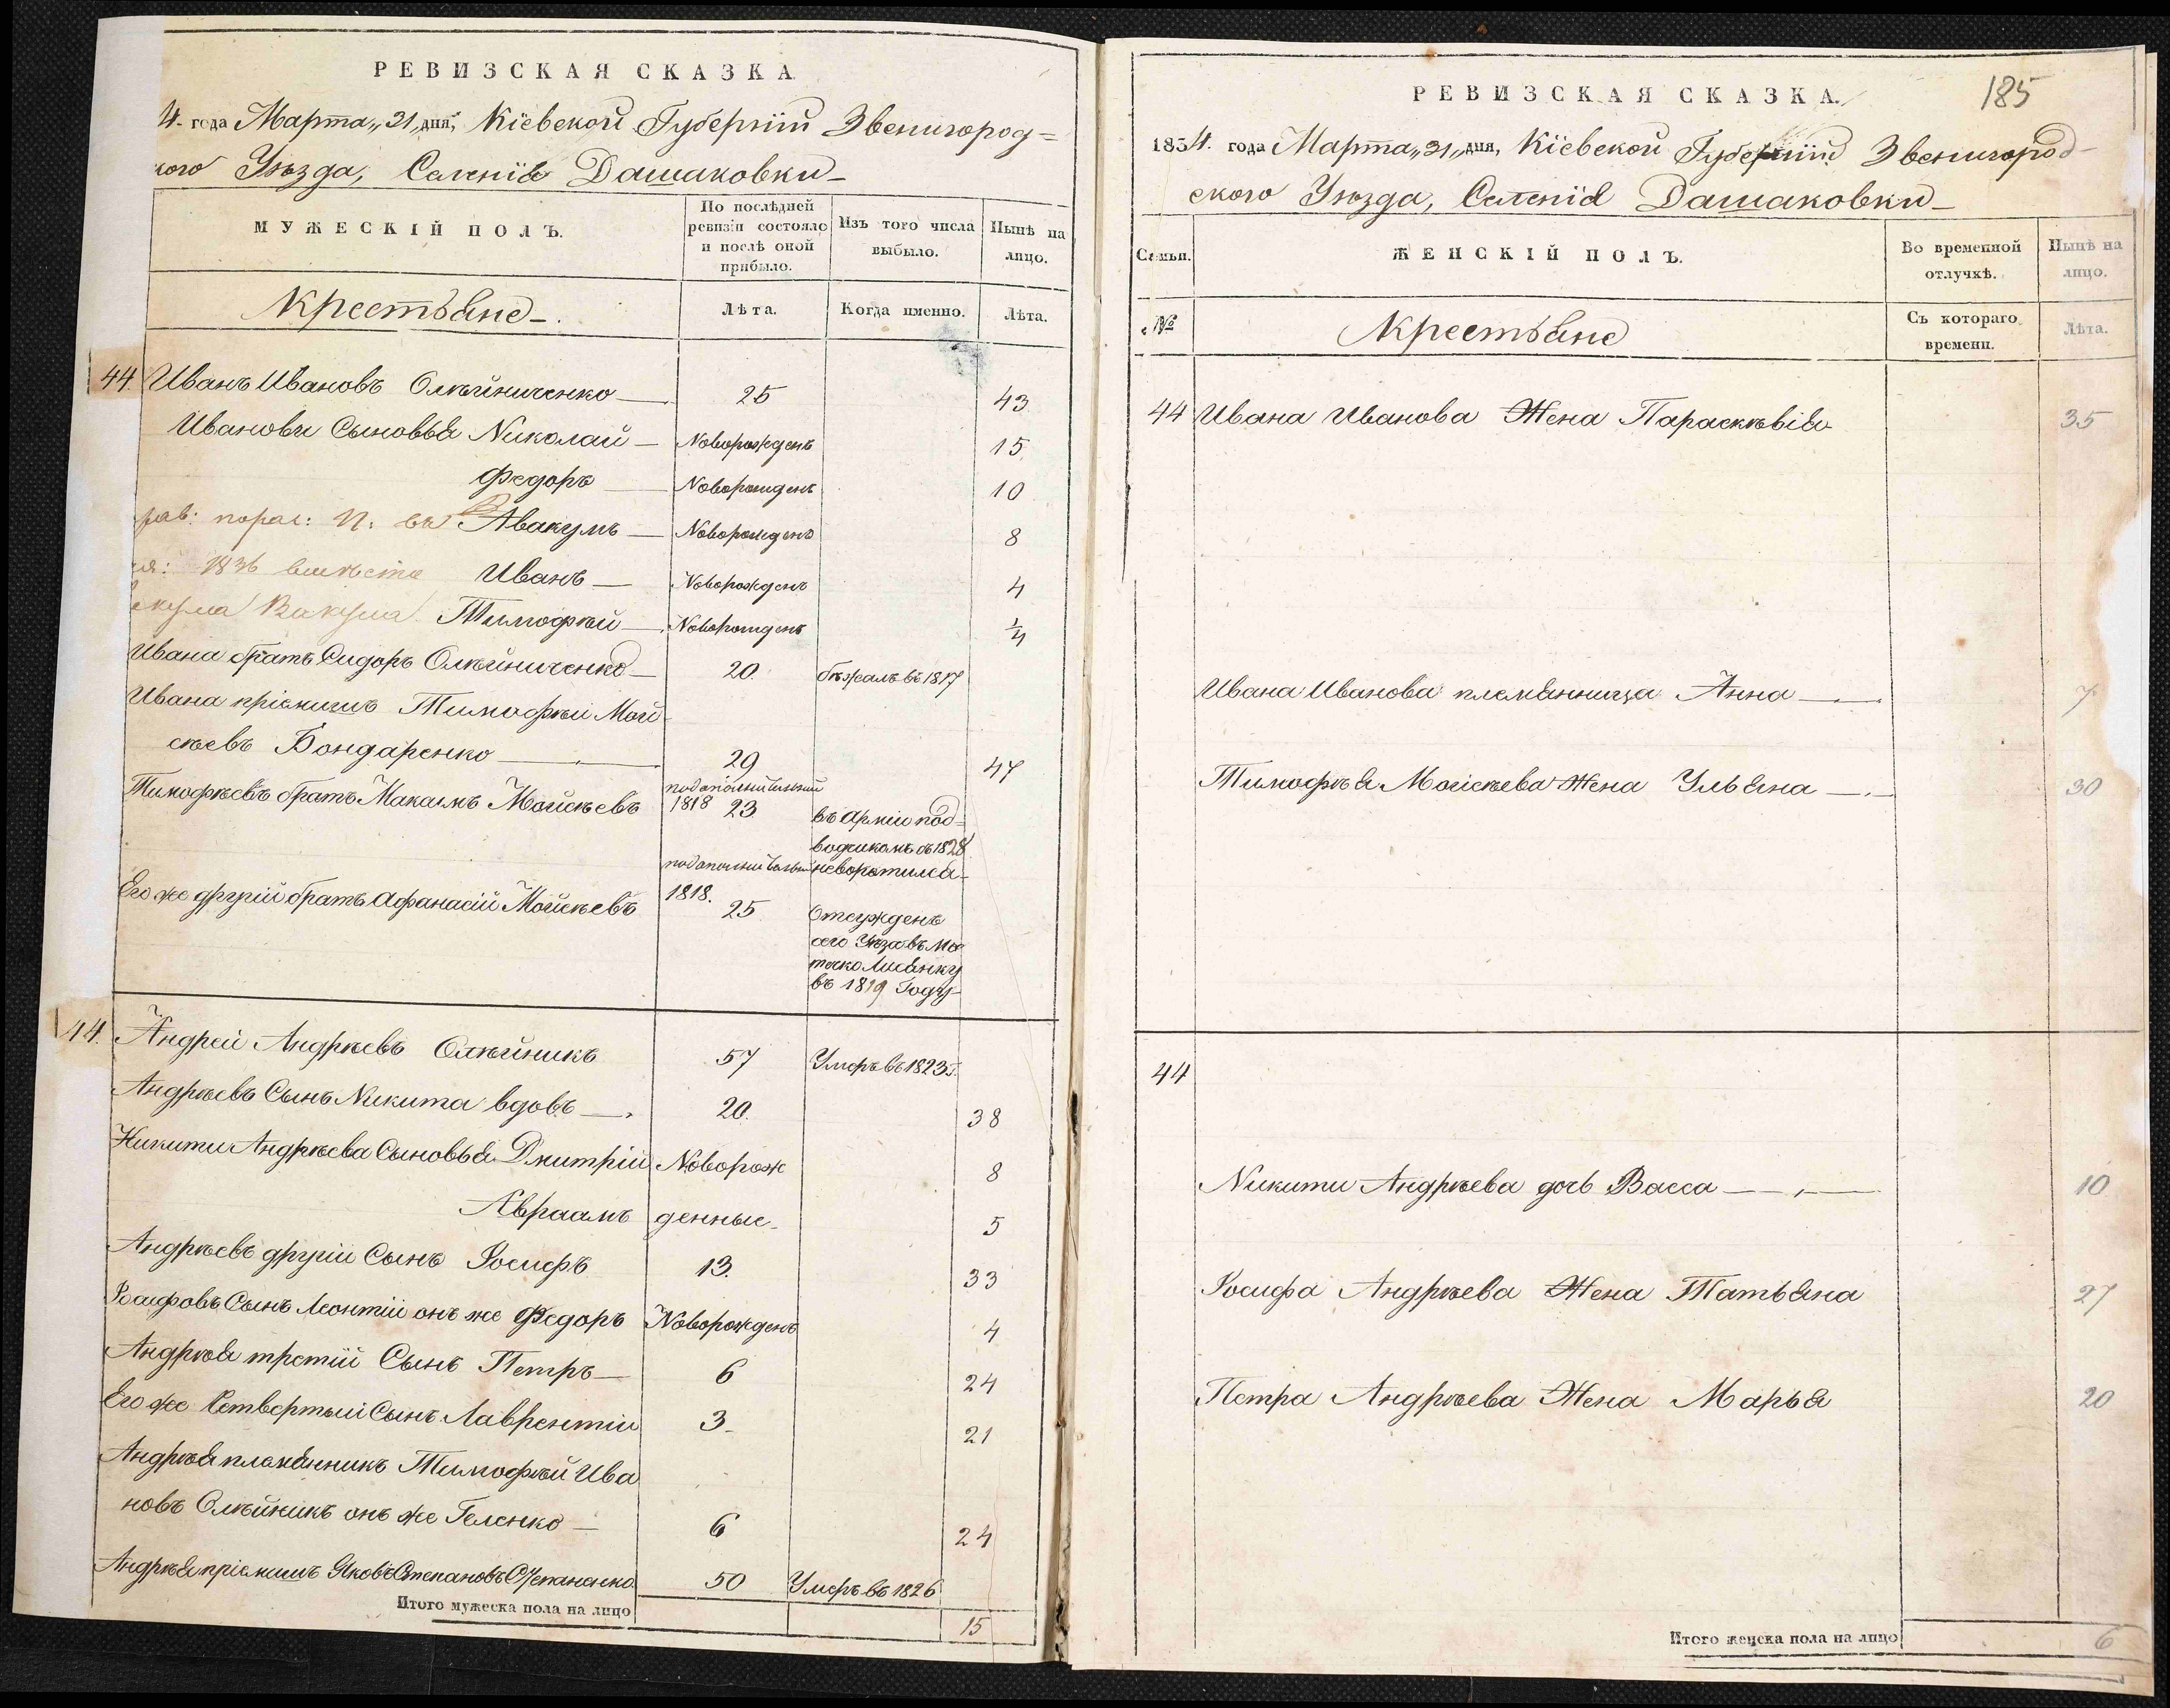 РЕВИЗСКАЯ СКАЗКА
4. года Марта „21„ дня, Кіевской Губерніи Звенигород=
кого Уѣзда, Селенія Дашаковки
МУЖЕСКІЙ ПОЛЪ.
По послѣдней ревизіи состояло и послѣ оной прибыло.
Изъ того числа выбыло.
Нынѣ на лицо.
Крестьяне
Лѣта.
Когда именно.
Лѣта.
44. Иванъ Ивановъ Олѣйниченко 25 43
Ивановы Сыновья Николай Новорожденъ 15
Федоръ Новорожденъ 10
Авакумъ Новорожденъ 8
1836 вмѣсто Иванъ Новорожденъ 4
Вакума Тимофѣй Новорожденъ 1/4
Ивана братъ Сидоръ Олѣйниченко 20. бѣжалъ въ 1817
Ивана пріемышъ Тимофѣй Мой
сѣевъ Бондаренко 29 47
Тимофѣевъ братъ Максимъ Мойсѣевъ 1818 23 въ Арміи под=
водчикомъ въ 1828
неворотился
Его же другій братъ Афанасій Мойсѣевъ 1818. 25 Отсужденъ
сего Уѣз въ Мѣ
течко Лисянку
въ 1819 Году
44. Андрей Андрѣевъ Олѣйникъ 57 Умеръ въ 1823 г.
Андрѣевъ Сынъ Никита вдовъ 20. 38
Никиты Андрѣева Сыновья Дмитрій Новорож 8
Авраамъ денные 5
Андрѣевъ другій Сынъ Іосифъ 13. 33
Іосифовъ Сынъ Леонтій онъ же Федоръ Новорожденъ 4
Андрѣя третій Сынъ Петръ 6 24
Его же Четвертый Сынъ Лаврентій 3 21
Андрѣя племянникъ Тимофѣй Ива
новъ Олѣйникъ онъ же Геленко 6 24
Андрѣя пріемышъ Яковъ Степановъ 50 Умеръ въ 1826
Итого мужеска пола на лицо 15
185
РЕВИЗСКАЯ СКАЗКА.
1834. года Марта „21„ дня, Кіевской Губерніи Звенигород-
ского Уѣзда, Селенія Дашаковки
Семьи.
ЖЕНСКІЙ ПОЛЪ.
Во временной отлучкѣ.
Нынѣ на лицо.
№
Крестьяне
Съ котораго времени.
Лѣта.
44 Ивана Иванова Жена Параскѣвія 35
Ивана Иванова племянница Анна 7
Тимофѣя Мойсѣева Жена Ульяна 30
44
Никиты Андрѣева дочь Васса 10
Іосифа Андрѣева Жена Татьяна 27
Петра Андрѣева Жена Марья 20
Итого женска пола на лицо 6